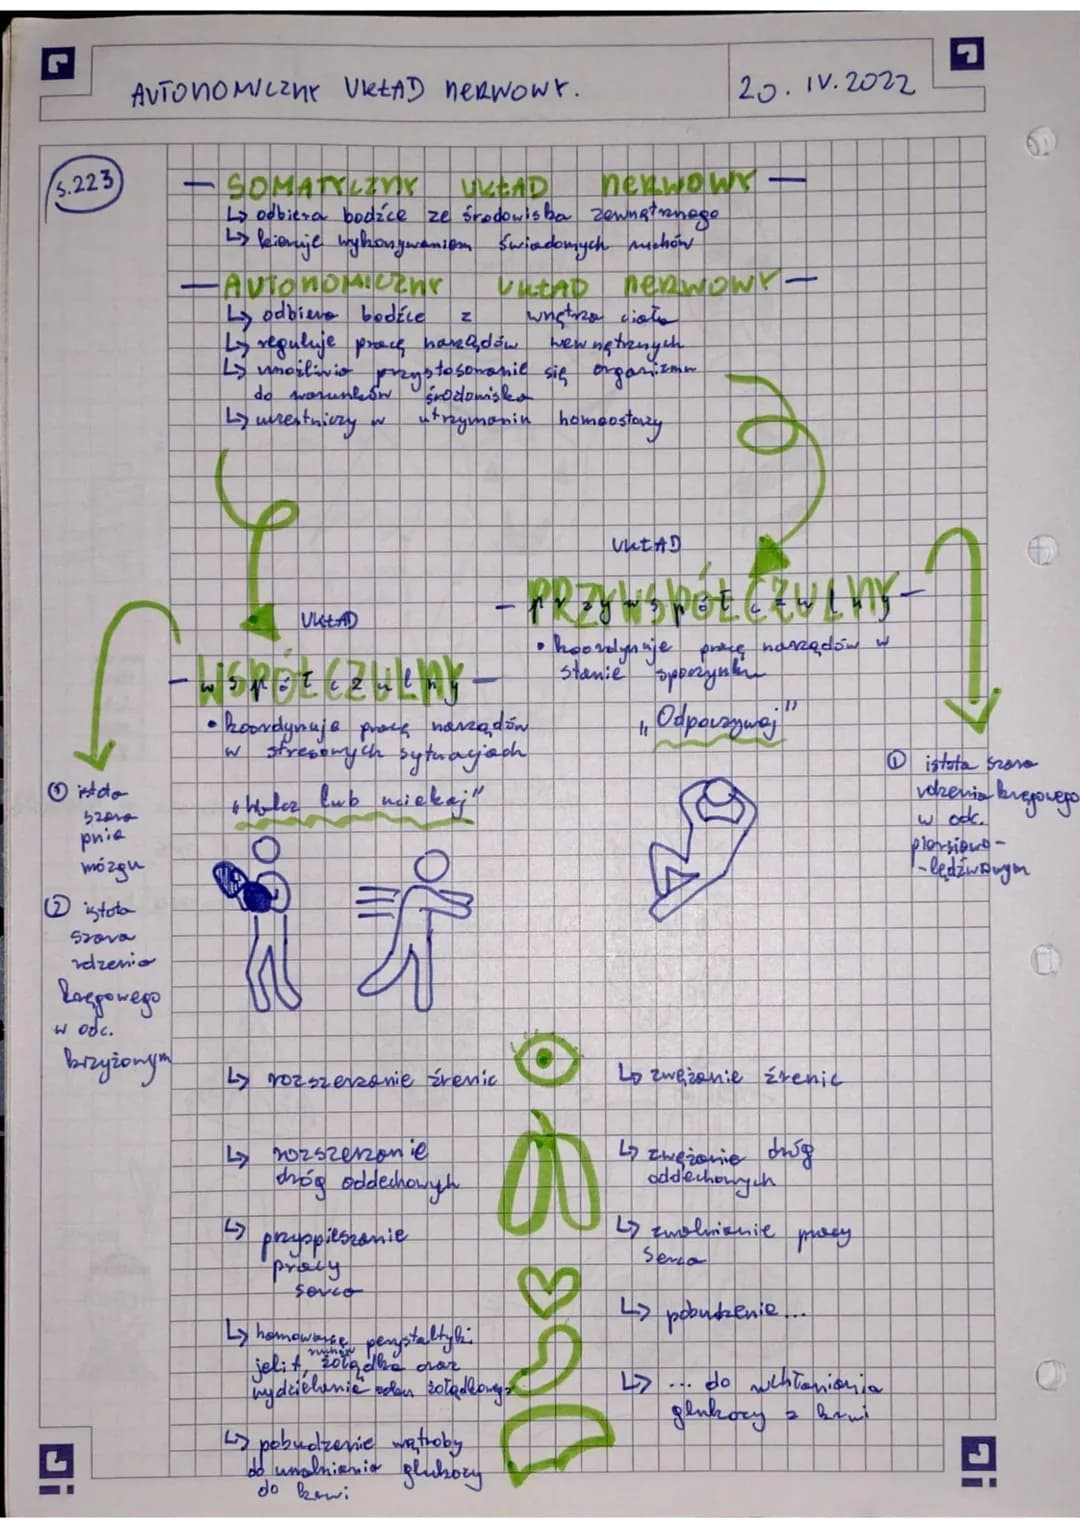 AUTONOMICZNY UKŁAD NERWOWY.
20. IV. 2022
s.223
— SOMATYCZNY UKŁAD NERWOWY —
↳ odbiera bodźce ze środowiska zewnątrznego
↳ kieruje wykonywaniem świadomych ruchów
— AUTONOMICZNY UKŁAD NERWOWY —
↳ odbiera bodźce z wnętrza ciała
↳ reguluje pracę narządów wewnętrznych
↳ umożliwia przystosowanie się organizmu
do warunków środowiska
↳ uczestniczy w utrzymaniu homeostazy
UKŁAD
— PRZYWSPÓŁCZULNY —
• koordynuje pracę narządów w
stanie spoczynku
„Odpoczywaj"
UKŁAD
— WSPÓŁCZULNY —
• koordynuje pracę narządów
w stresowych sytuacjach
„Walcz lub uciekaj"
① istota
szara
pnia
mózgu
② istota
szara
rdzenia
kręgowego
w odc.
krzyżowym
① istota szara
rdzenia kręgowego
w odc.
piersiowo-
-lędźwowym
↳ rozszerzanie źrenic
↳ zwężanie źrenic
↳ rozszerzanie
dróg oddechowych
↳ zwężanie dróg
oddechowych
↳ przyspieszanie
pracy
serca
↳ zwolnienie pracy
serca
↳ hamowanie perystaltyki
ruchów
jelit, żołądka oraz
wydzielanie żołądkowego
↳ pobudzenie...
↳ pobudzenie wątroby
do uwalniania glukozy
do krwi
↳ ... do wchłaniania
glukozy z krwi